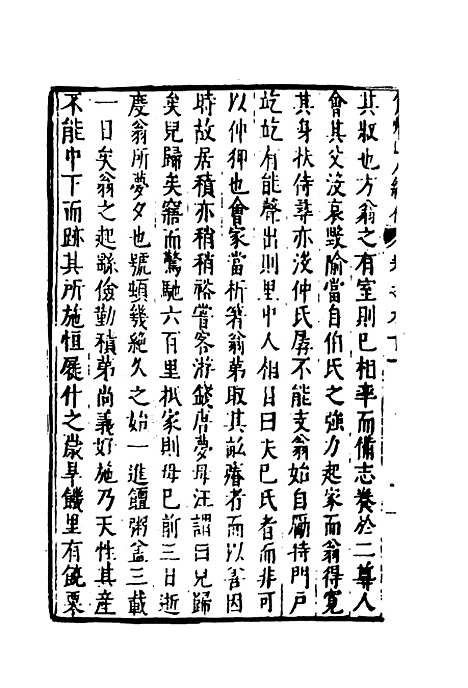 其馭也方翁之有室則已相率而備志養於二尊人
會其父沒哀毀喻當自伯氏之強力起家而翁得寬
其身扶侍孽亦沒仲氏孱不能支翁始自勵持門戶
訖訖有能聲出則里中人相目曰夫巳氏者而非可
以仲狎也會家當析箸翁第取其訟瘠者而以善因
時故居積亦稍稍裕嘗客游錢唐夢母汪謂曰兒歸
矣兒歸矣寤而驚馳六百里抵家則母已前三日逝
慶翁所夢夕也號頓幾絕久之始一進饘粥盖三載
一日矣翁之起繇儉勤積第尚義好施乃天性其產
不能中下而跡其所施恒屣什之歲旱饑里有饒粟